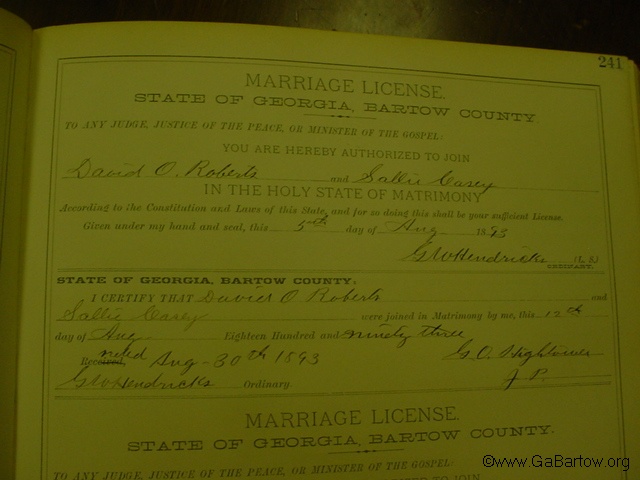 241
MARRIAGE LICENSE.
STATE OF GEORGIA, BARTOW COUNTY.
TO ANY JUDGE, JUSTICE OF THE PEACE, OR MINISTER OF THE GOSPEL:
YOU ARE HEREBY AUTHORIZED TO JOIN
David O. Roberts and Sallie Casey
IN THE HOLY STATE OF MATRIMONY
According to the Constitution and Laws of this State, and for so doing this shall be your sufficient License.
Given under my hand and seal, this 5th day of Aug 1893
GW Hendricks (L. S.)
ORDINARY.
STATE OF GEORGIA, BARTOW COUNTY.
I CERTIFY THAT David O Roberts and
Sallie Casey were joined in Matrimony by me, this 12th
day of Aug Eighteen Hundred and ninety three
Aug - 30th 1893 G. O. Hightower
GW Hendricks Ordinary. J P.
MARRIAGE LICENSE.
STATE OF GEORGIA, BARTOW COUNTY.
TO ANY JUDGE, JUSTICE OF THE PEACE, OR MINISTER OF THE GOSPEL:
©www.GaBartow.org